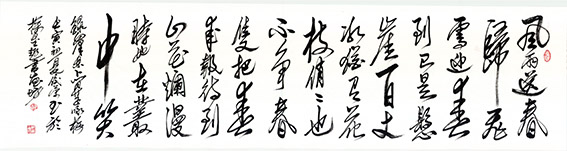 風雨送春
歸飛
雪迎春
到已是懸
崖百丈
冰猶有花
枝俏俏也
不爭春
隻把春
來報待到
山花爛漫
時她在叢
中笑